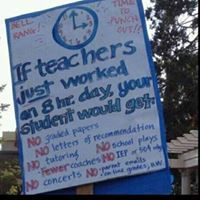 BELL RANG!
TIME TO PUNCH OUT!!
If teachers
just worked
an 8 hr. day, your
student would get:
NO graded papers
NO letters of recommendation
NO tutoring NO school plays
NO fewer coaches NO IEP or 504
NO concerts NO parent emails
on-line grades, H.W.